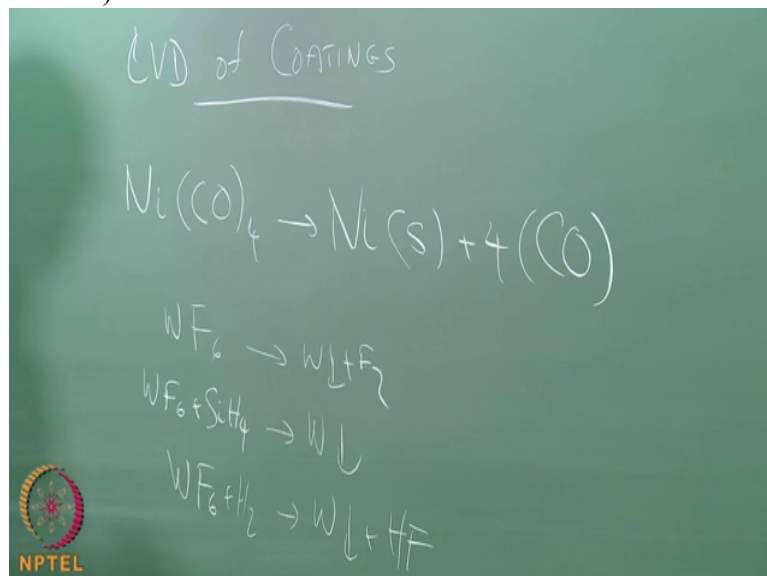 CVD of COATINGS
Ni(CO)₄ → Ni(s) + 4(CO)
WF₆ → W↓ + F₂
WF₆ + SiH₄ → W↓
WF₆ + H₂ → W↓ + HF
NPTEL